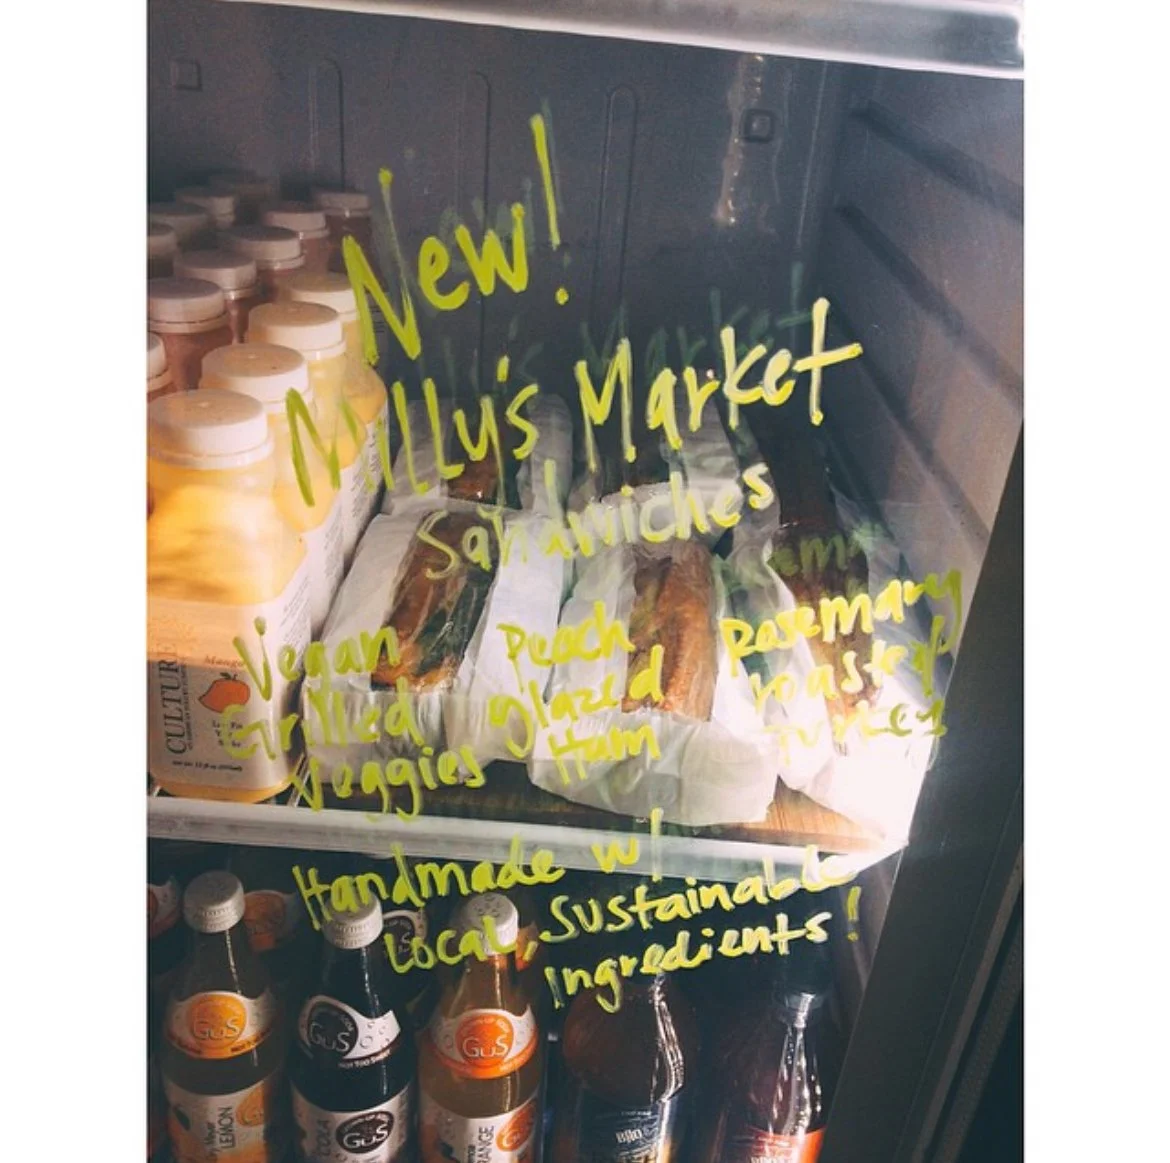 New!
Milly's Market
Sandwiches
Vegan
Grilled
Veggies
Peach
glazed
Ham
Rosemary
roasted
turkey
Handmade w/
Local, Sustainable
ingredients!
CULTURE
Mango
GuS
LEMON
GuS
NOT TOO SWEET
COLA
GuS
GuS
BRO
BRO